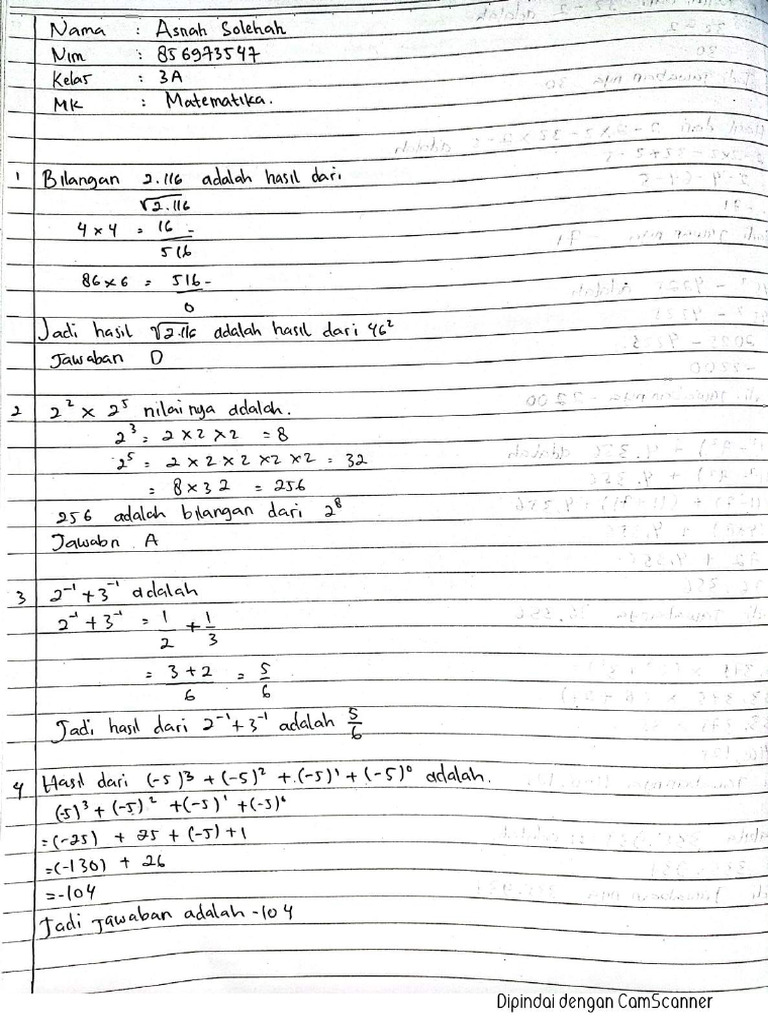 Nama : Asnah Solehah
Nim : 856973547
Kelas : 3A
MK : Matematika.
1 Bilangan 2.116 adalah hasil dari
√2.116
4 x 4 = 16 -
516
86 x 6 = 516 -
0
Jadi hasil √2.116 adalah hasil dari 46²
Jawaban D
2 2² x 2⁵ nilainya adalah.
2³ = 2 x 2 x 2 = 8
2⁵ = 2 x 2 x 2 x 2 x 2 = 32
= 8 x 32 = 256
256 adalah bilangan dari 2⁸
Jawabn A
3 2⁻¹ + 3⁻¹ adalah
2⁻¹ + 3⁻¹ = 1/2 + 1/3
= 3 + 2 / 6 = 5/6
Jadi hasil dari 2⁻¹ + 3⁻¹ adalah 5/6
4 Hasil dari (-5)³ + (-5)² + (-5)¹ + (-5)⁰ adalah.
(-5)³ + (-5)² + (-5)¹ + (-5)⁰
= (-25) + 25 + (-5) + 1
= (-130) + 26
= -104
Jadi jawaban adalah -104
Dipindai dengan CamScanner